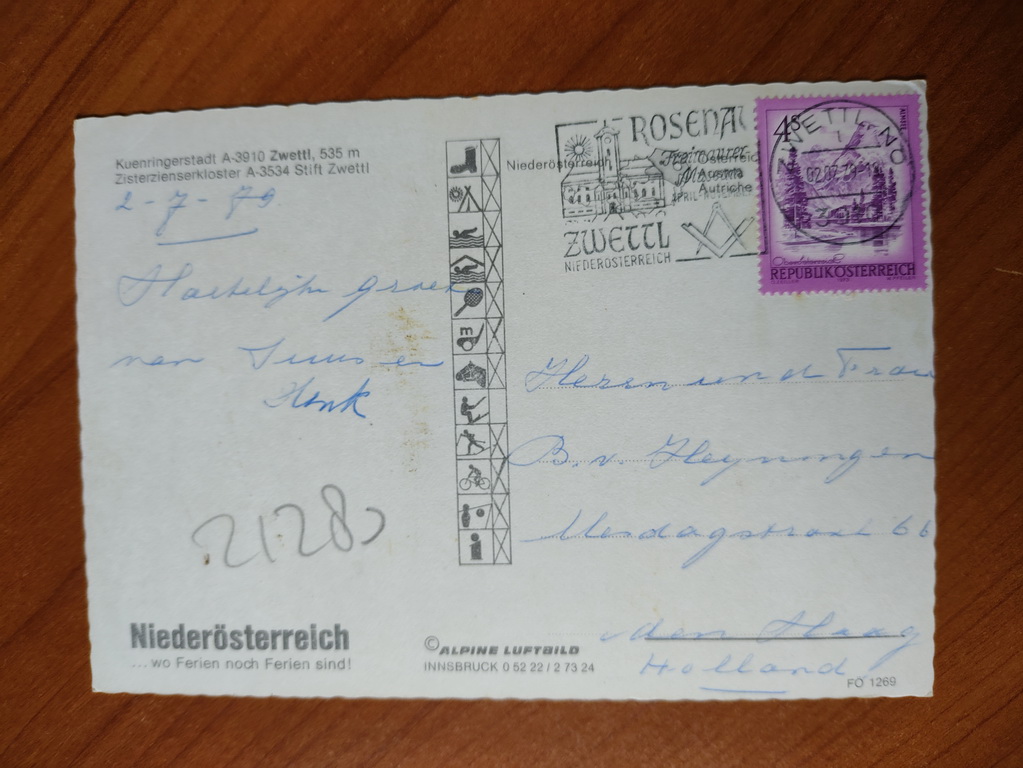 Kuenringerstadt A-3910 Zwettl, 535 m
Zisterzienserkloster A-3534 Stift Zwettl
2-7-79
Hartelijke groet
van Truus en
Henk
21283
Niederösterreich
... wo Ferien noch Ferien sind!
Niederösterreich
Österreich
Austria
Autriche
ROSENAU
Freimaurer-
Museum
APRIL-NOVEMBER
ZWETTL
NIEDERÖSTERREICH
4S
REPUBLIK ÖSTERREICH
ZWETTL, NÖ
m
i
Herrn und Frau
B. v. Heyningen
Mesdagstraat 66
den Haag
Holland
© ALPINE LUFTBILD
INNSBRUCK 0 52 22 / 2 73 24
FO 1269